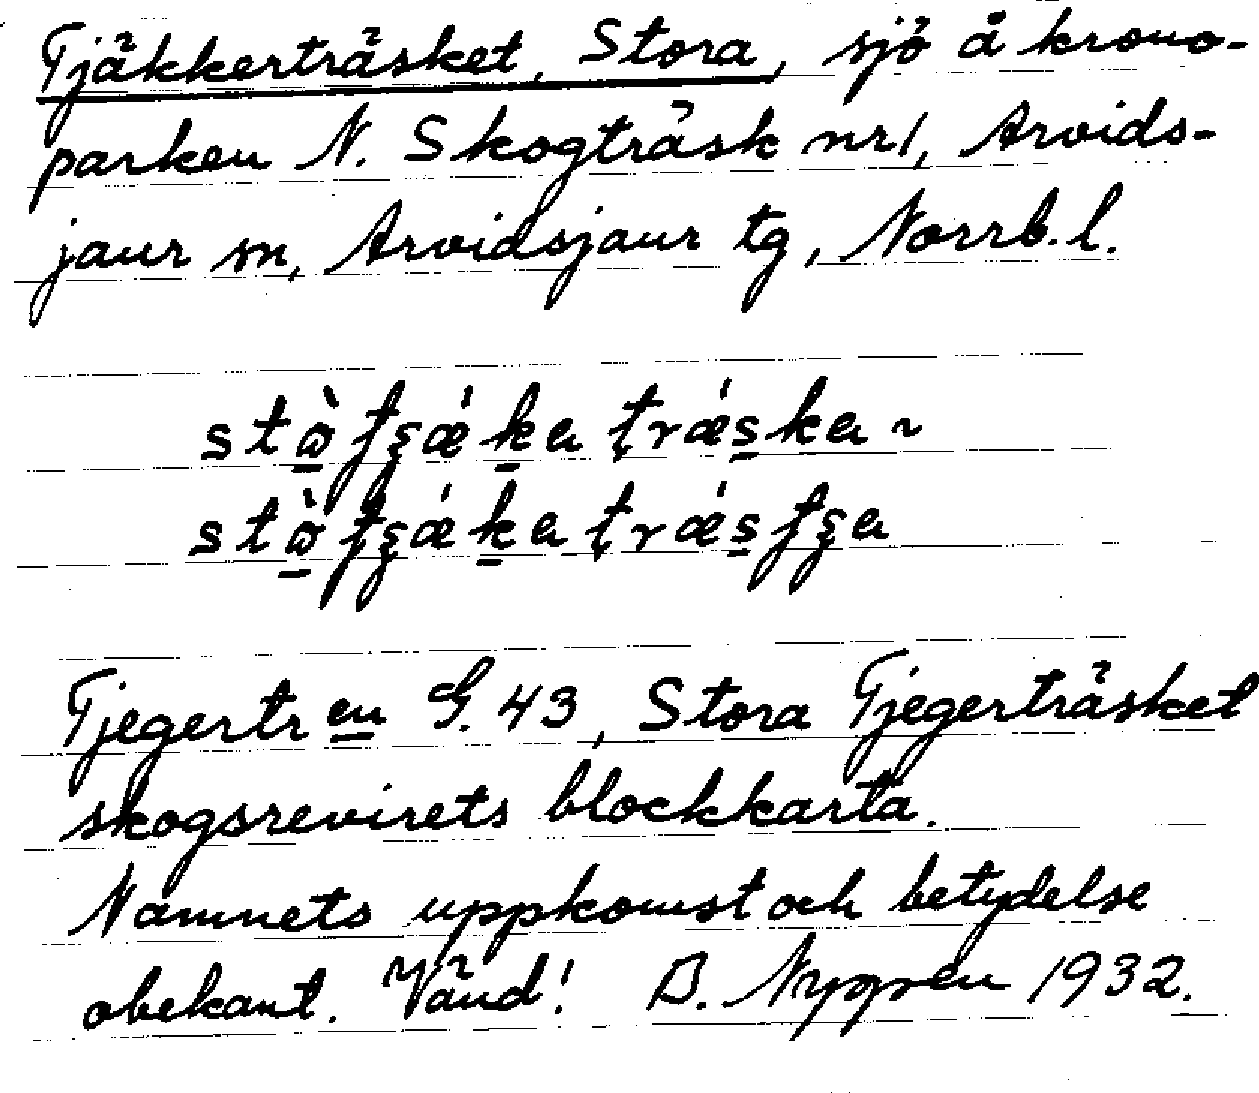 Tjäkkerträsket, Stora, sjö å krono-
parken N. Skogträsk nr 1, Arvids-
jaur sn, Arvidsjaur tg, Norrb. l.
Tjegertr en G. 43, Stora Tjegerträsket
skogsrevirets blockkarta.
Namnets uppkomst och betydelse
obekant. Vänd! B. Nygren 1932.